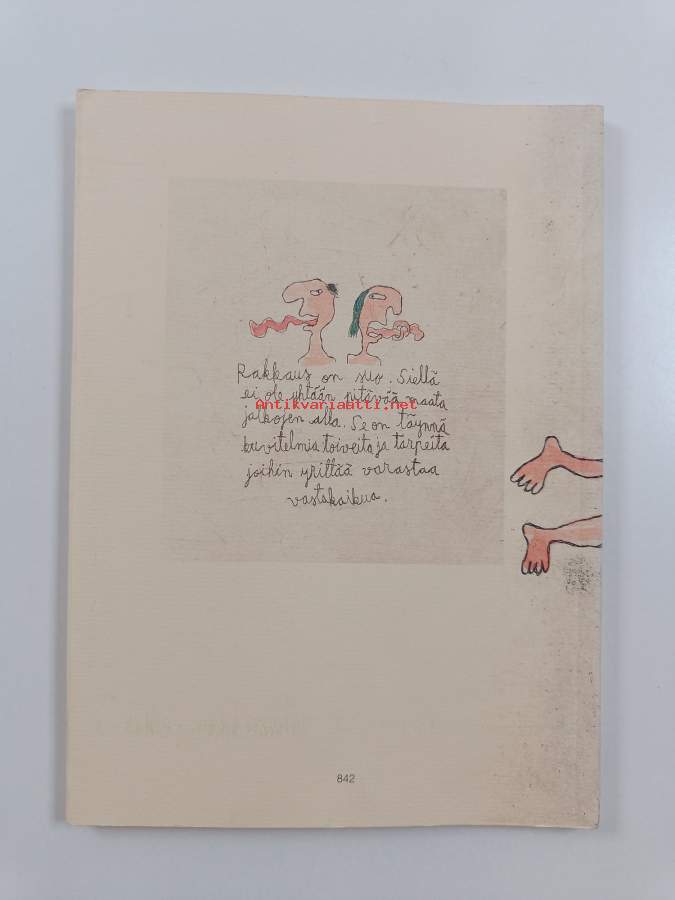 Rakkaus on suo. Siellä
ei ole yhtään pitävää maata
Antikvariaatti.net
jalkojen alla. Se on täynnä
kuvitelmia toiveita ja tarpeita
joihin yrittää varastaa
vastakaikua.
842